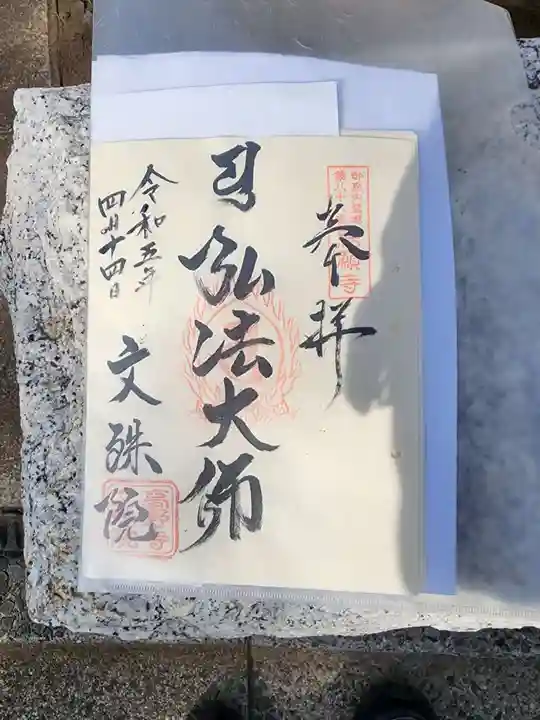 奉拝
弘法大師
令和五年
四月十四日
文殊院